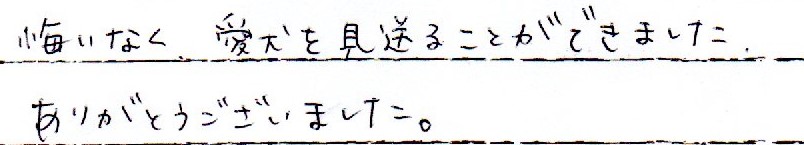 悔いなく、愛犬を見送ることができました.
ありがとうございました。